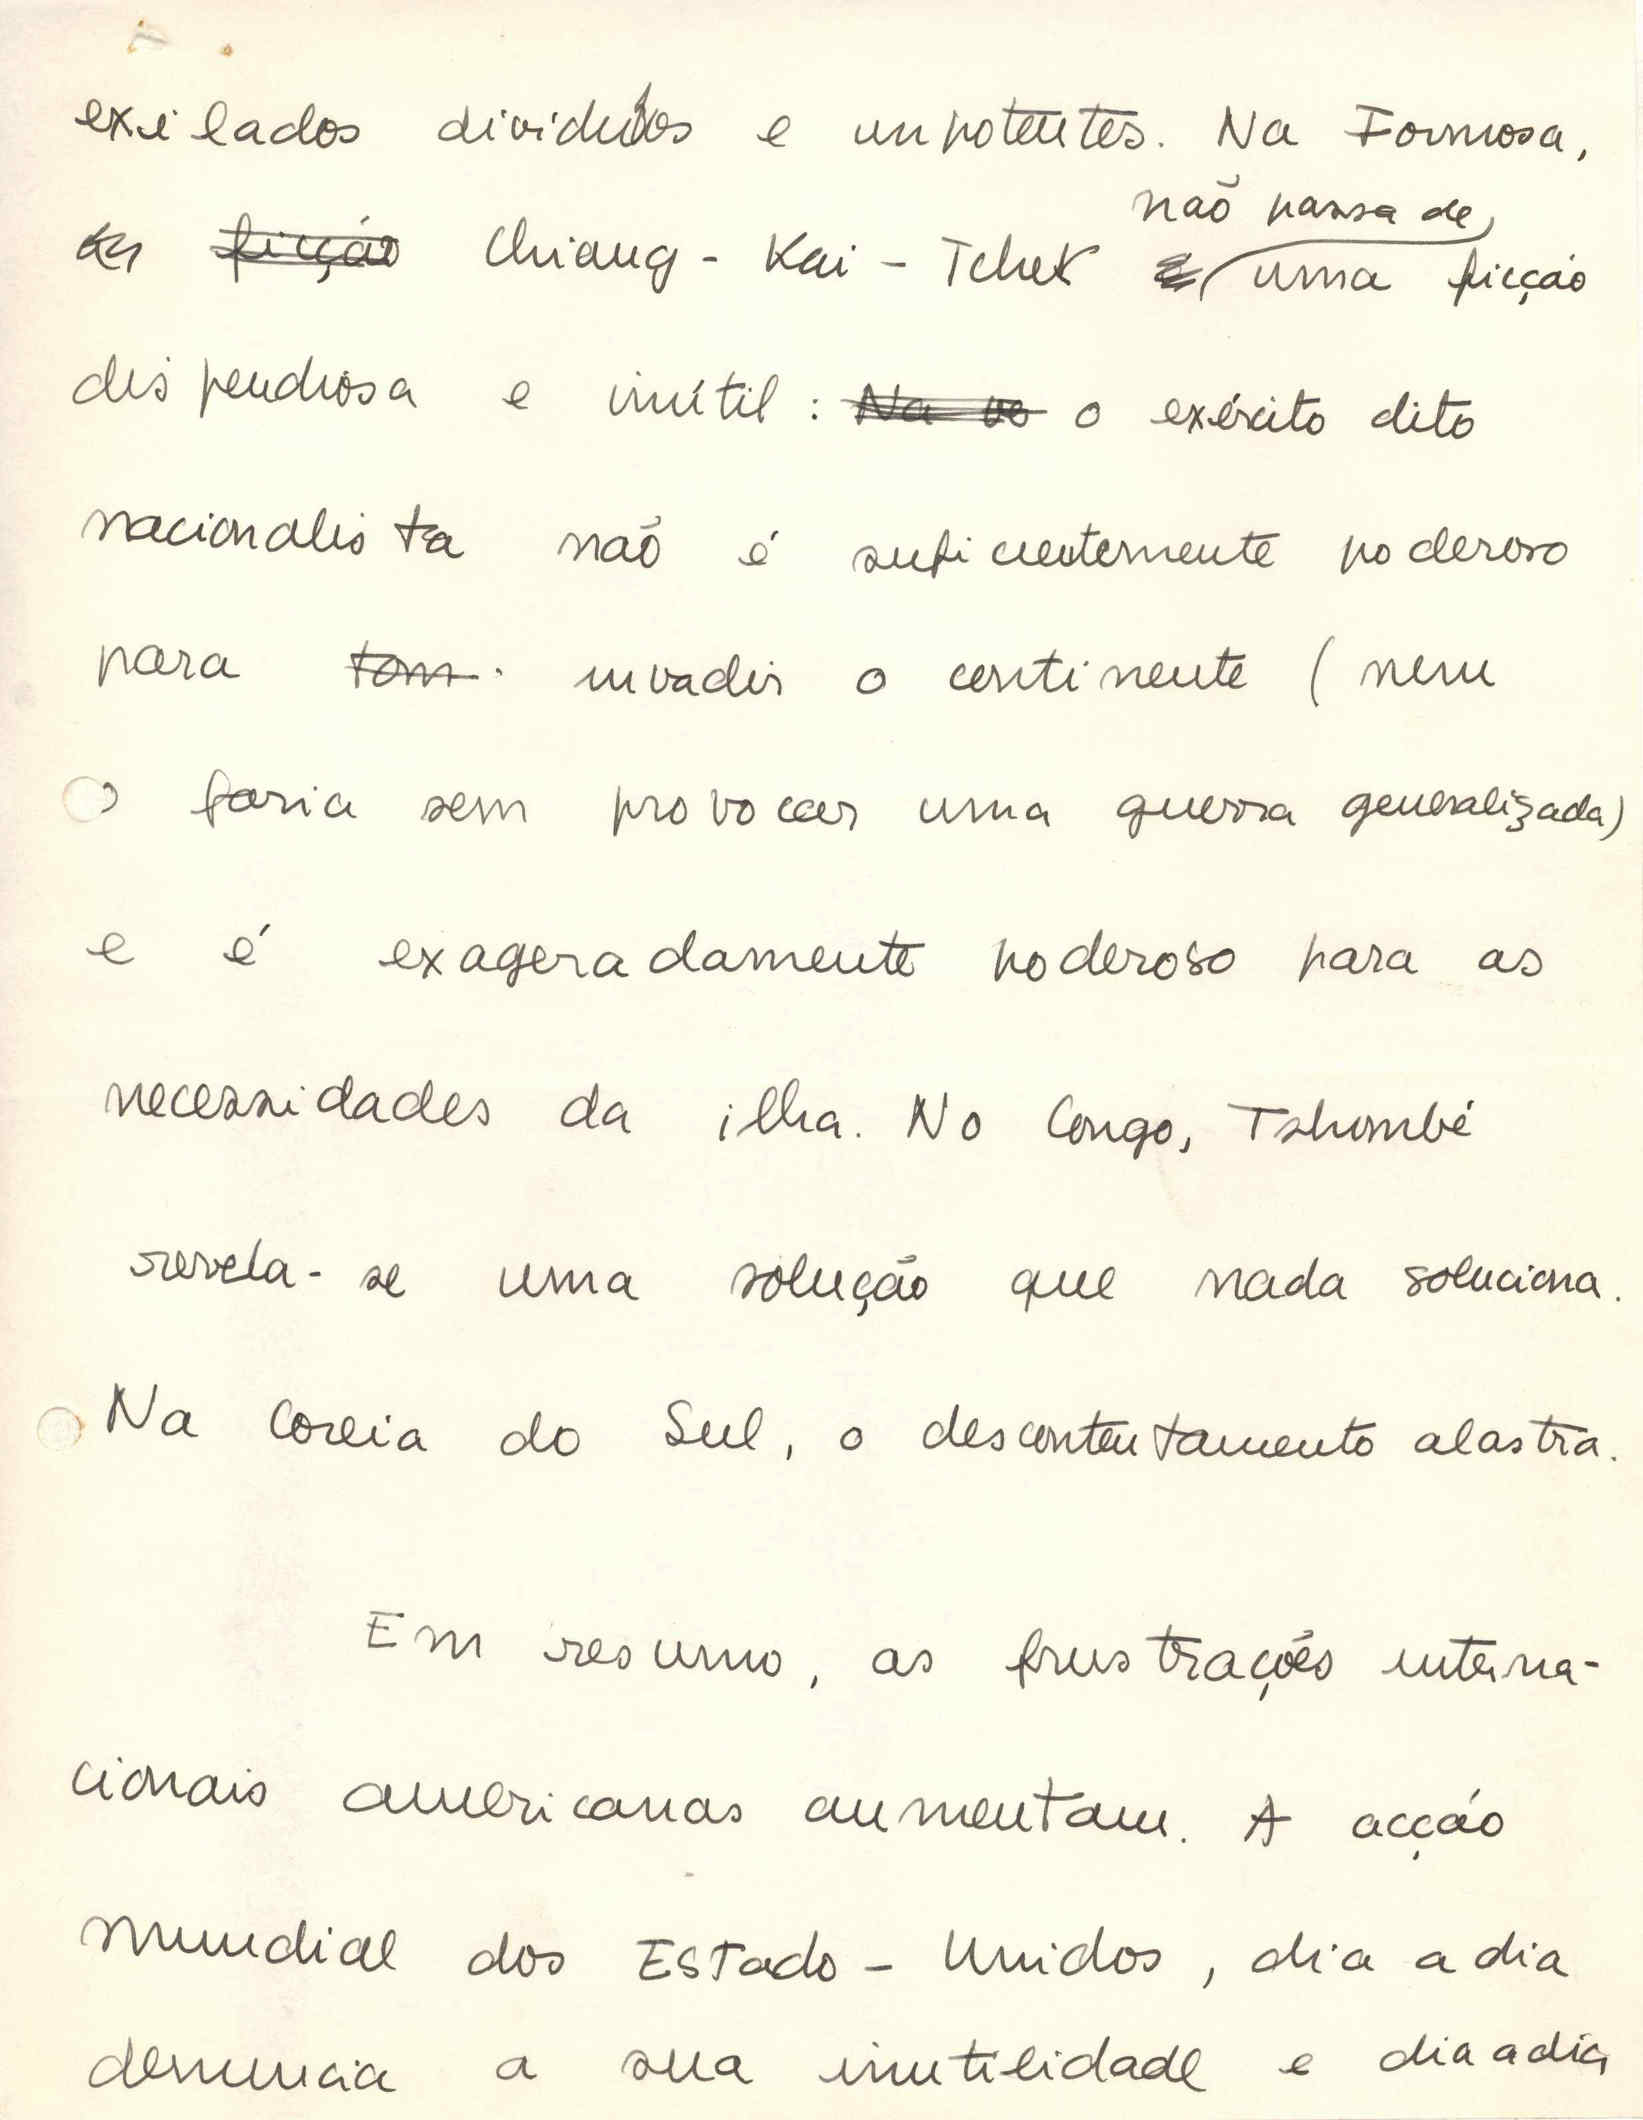 exilados divididos e impotentes. Na Formosa,
não passa de
ficção Chiang-Kai-Tchek uma ficção
dispendiosa e inútil: Na vo o exército dito
nacionalista não é suficientemente poderoso
para tom invadir o continente (nem
o faria sem provocar uma guerra generalizada)
e é exageradamente poderoso para as
necessidades da ilha. No Congo, Tshombé
revela-se uma solução que nada soluciona.
Na Coreia do Sul, o descontentamento alastra.
Em resumo, as frustrações interna-
cionais americanas aumentam. A acção
mundial dos Estado-Unidos, dia a dia
denuncia a sua inutilidade e dia a dia